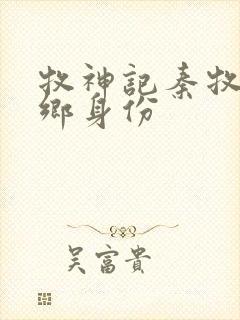 牧神記秦牧
鄉身份
吴富貴